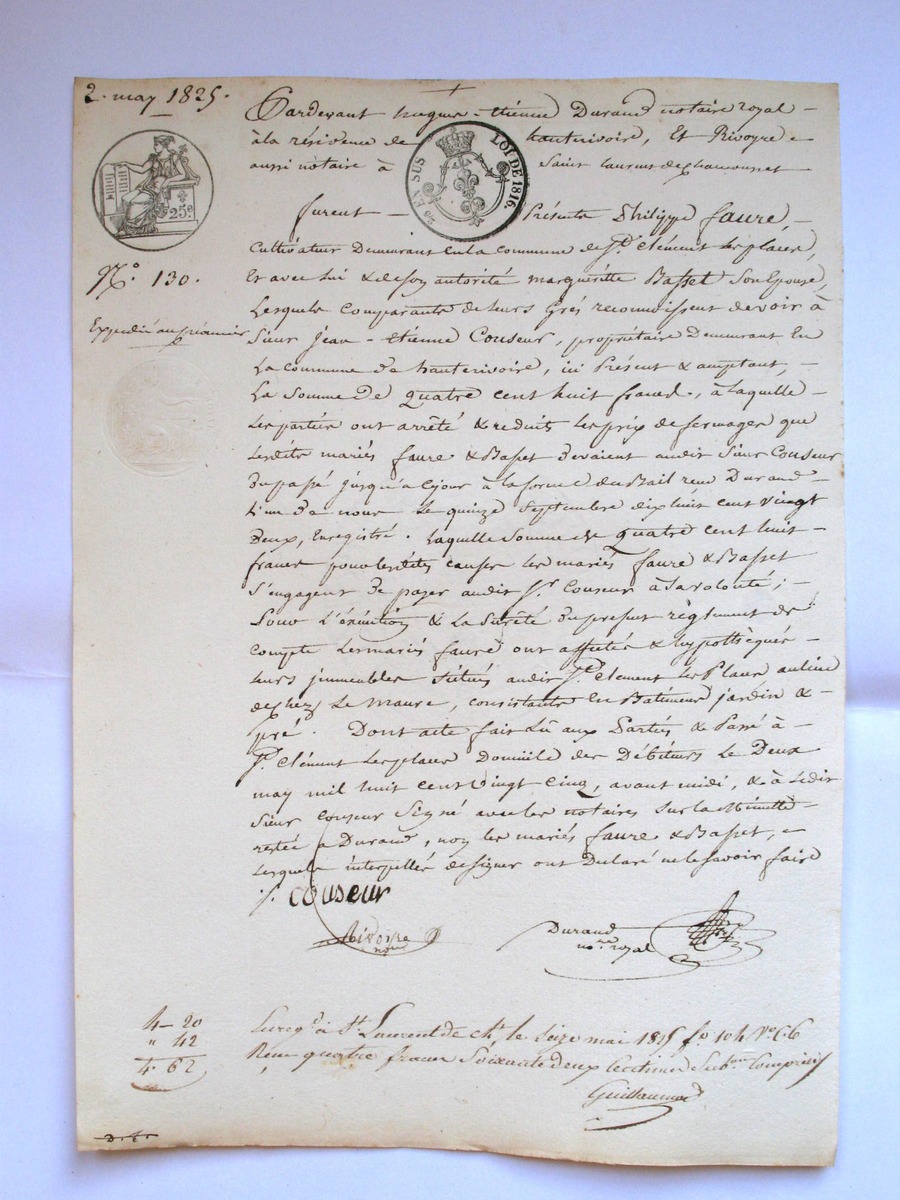 2. may 1825.
Pardevant hugues-etienne Durand notaire royal
à la résidence de hauterivoire, Et Rivoyre
aussi notaire à Saint Laurent de chamousset
EN SUS LOI DE 1816.
25c
furent Présents Philippe faure
Cultivateur Demeurant en la commune de St. Clément les places,
Et avec lui & de son autorité margueritte Basset Son Epouse,
Lesquels comparants de leurs Grés reconnoissent devoir à
N.o 130.
Sieur Jean-Etienne Couseur, propriétaire Demeurant En
La commune De hauterivoire, ici Présent & acceptant,
La Somme De quatre cent huit francs, à laquelle
Les parties ont arrêté & reduits Les prix de fermages que
Lesdits mariés faure & Basset Devaient audit Sieur Couseur
Du passé jusqu'à cejour à la forme du Bail reçu Durand
L'un De nous Le quinze Septembre dix huit cent vingt
Deux, Enregistré. Laquelle Somme de quatre cent huit
francs pour lesdites causes les mariés faure & Basset
S'engagent De payer audit Sr. Couseur à Sa volonté;
Sous L'exécution & La Sureté Du present règlement de
Compte Les mariés faure ont affectés & hypothèqués
Leurs immeubles Situés audit St. Clement Les Places au lieu
de chez Le Maure, consistants En Batiments jardin &
pré. Dont acte fait Lû aux Parties & Passé à
St. Clément Les places Domicile des Débiteurs Le Deux
may mil huit cent vingt Cinq, avant midi, & à Ledit
Sieur Couseur Signé avec les notaires Sur la Minutte
restée à Durand, non les mariés faure & Basset,
Lesquels interpellés de signer ont Déclaré ne le Savoir faire
J. Couseur
Rivoire
Durand
nore. royal
4-20
" 42
4. 62
Enregé. à St. Laurent de Ch. le Seize mai 1825 fo 104 Vo C. 6
Reçu quatre francs Soixante deux centimes Subon Comprise
Guillaumard